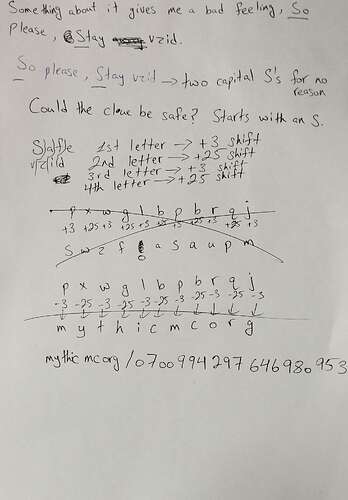 Something about it gives me a bad feeling, So
please, Stay vzid.
So please, Stay vzid → two capital S's for no
reason
Could the clue be safe? Starts with an S.
Staffle 1st letter → +3 shift
v/z/i/d 2nd letter → +25 shift
3rd letter → +3 shift
4th letter → +25 shift
p x w g l b p b r q j
+3 +25 +3 +25 +3 +25 +3 +25 +3 +25 +3
S w z f o a s a u p m
p x w g l b p b r q j
-3 -25 -3 -25 -3 -25 -3 -25 -3 -25 -3
m y t h i c m c o r g
mythicmcorg/0700994297646980953